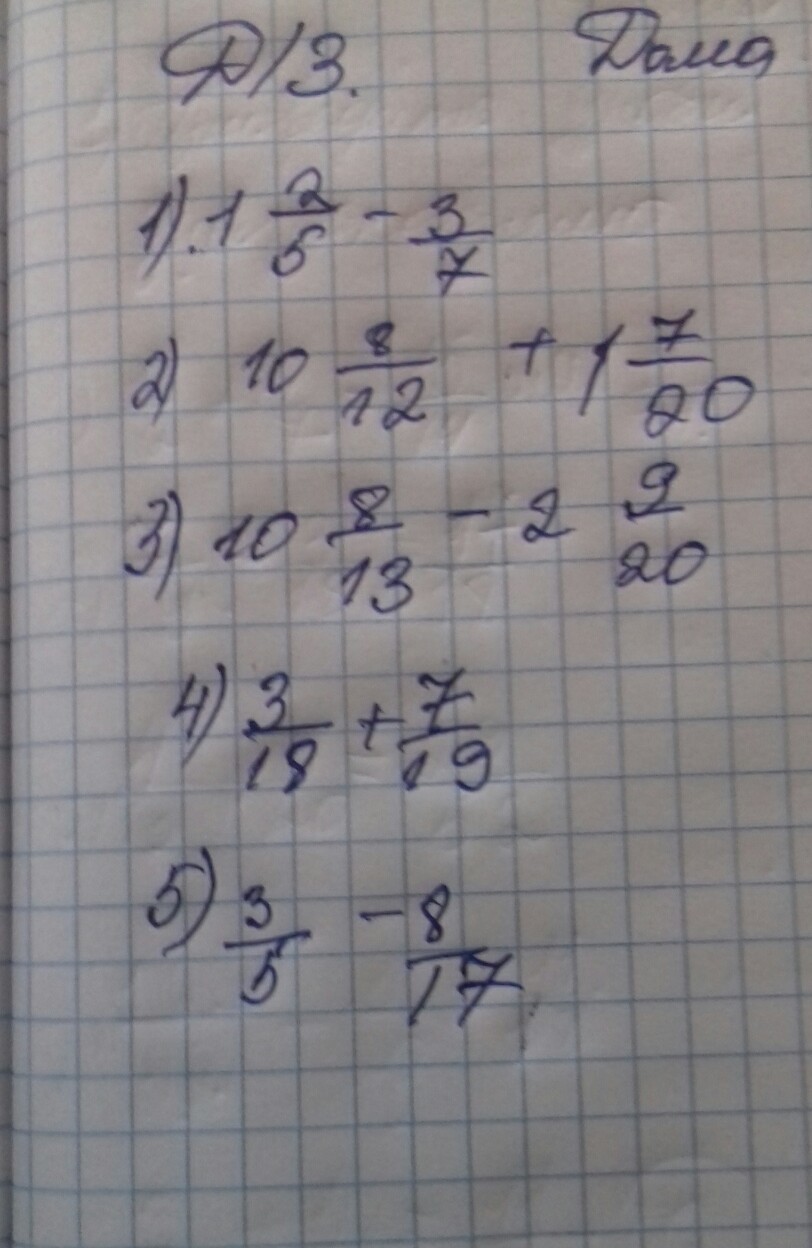 Д/З. Дома
1). 1 2/5 - 3/7
2) 10 8/12 + 1 7/20
3) 10 8/13 - 2 9/20
4) 3/18 + 7/19
5) 3/5 - 8/17